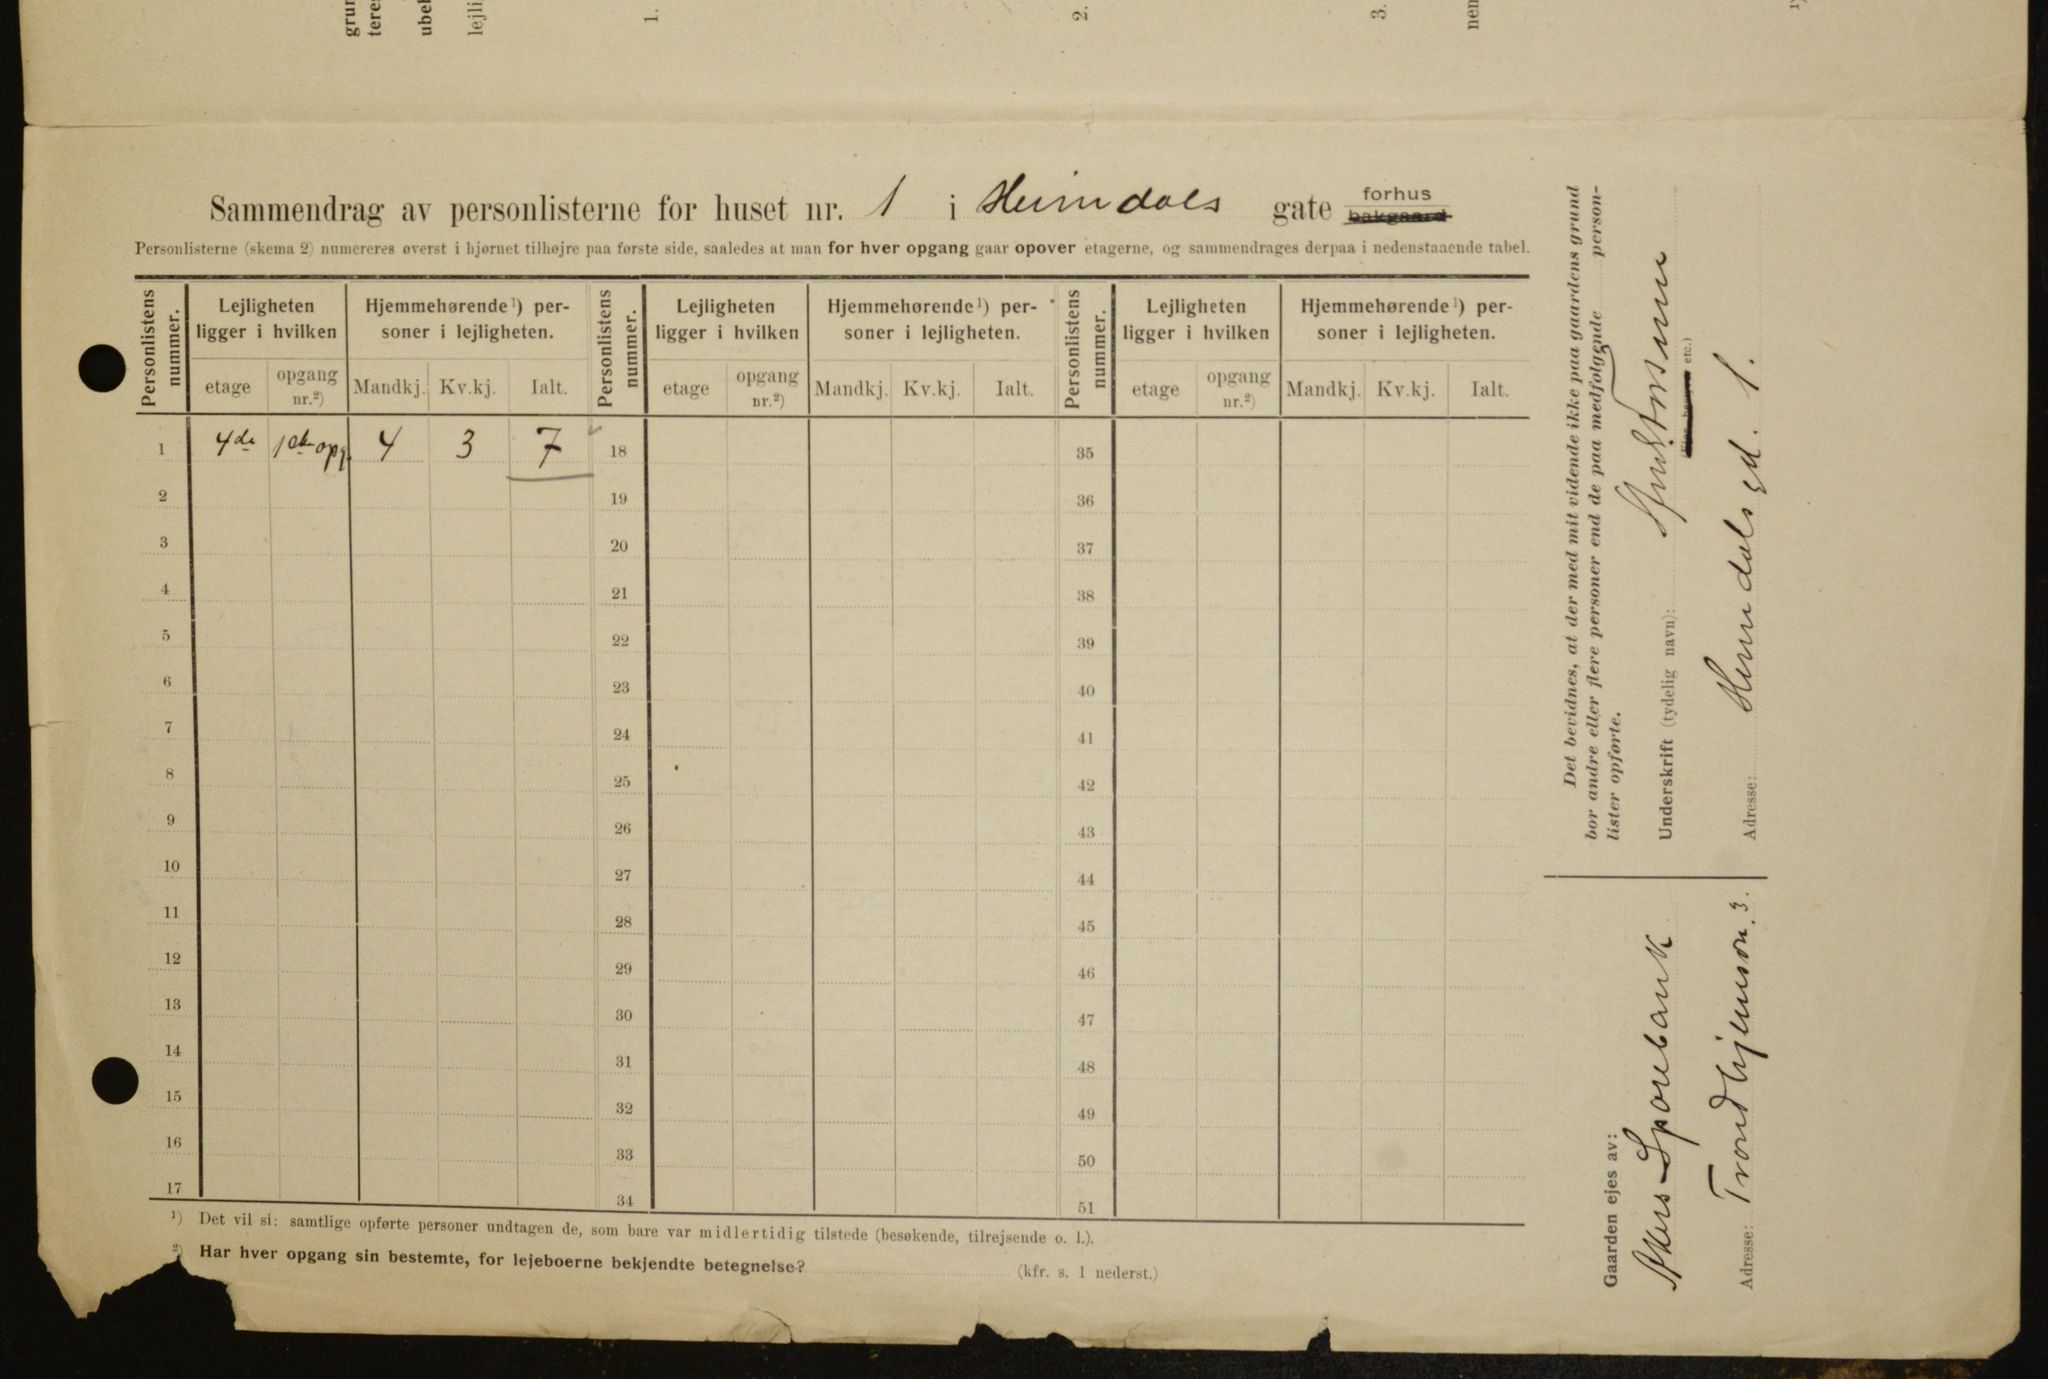 grun
teres
ubel
lejli
1.
2.
3.
nem
1)
Sammendrag av personlisterne for huset nr. 1 i Heimdals gate forhus
bakgaard
Personlisterne (skema 2) nummereres øverst i hjørnet tilhøjre paa første side, saaledes at man for hver opgang gaar opover etagerne, og sammendrages derpaa i nedenstaaende tabel.
Personlistens nummer. | Lejligheten ligger i hvilken | Hjemmehørende¹) personer i lejligheten. | Personlistens nummer. | Lejligheten ligger i hvilken | Hjemmehørende¹) personer i lejligheten. | Personlistens nummer. | Lejligheten ligger i hvilken | Hjemmehørende¹) personer i lejligheten.
etage | opgang nr.²) | Mandkj. | Kv.kj. | Ialt. | etage | opgang nr.²) | Mandkj. | Kv.kj. | Ialt. | etage | opgang nr.²) | Mandkj. | Kv.kj. | Ialt.
1 4de 1ste opg. 4 3 7 18 35
2 19 36
3 20 37
4 21 38
5 22 39
6 23 40
7 24 41
8 25 42
9 26 43
10 27 44
11 28 45
12 29 46
13 30 47
14 31 48
15 32 49
16 33 50
17 34 51
¹) Det vil si: samtlige opførte personer undtagen de, som bare var midlertidig tilstede (besøkende, tilrejsende o. l.).
²) Har hver opgang sin bestemte, for lejeboerne bekjendte betegnelse? (kfr. s. 1 nederst.)
Det bevidnes, at der med mit vidende ikke paa gaardens grund
bor andre eller flere personer end de paa medfølgende person-
lister opførte.
Underskrift (tydelig navn):
etc.)
Adresse: Heimdals gd. 1.
Gaarden ejes av:
Akers Sparebank
Adresse: Trondhjemsvn. 3.